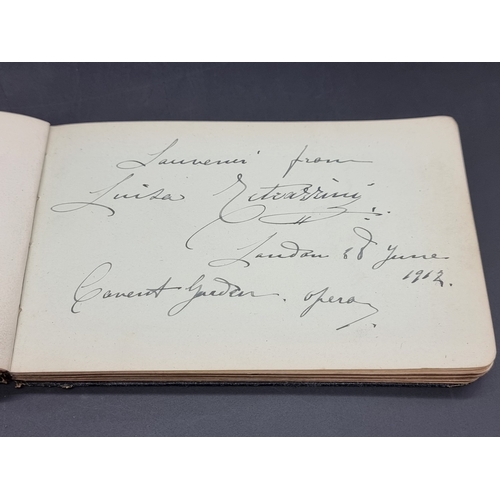 Souvenir from
Luisa Tetrazzini
London June
1912.
Covent Garden. opera